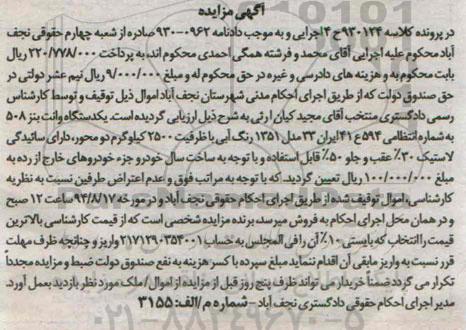 آگهی مزایده
در پرونده کلاسه ۹۳۰۱۲۴ ج ۴ اجرایی و به موجب دادنامه ۰۹۶۲-۹۳۰ صادره از شعبه چهارم حقوقی نجف
آباد محکوم علیه اجرایی آقای محمد و فرشته همگی احمدی محکوم اند، به پرداخت ۲۲۰/۷۷۸/۰۰۰ ریال
بابت محکوم به و هزینه های دادرسی و غیره در حق محکوم له و مبلغ ۹/۰۰۰/۰۰۰ ریال نیم عشر دولتی در
حق صندوق دولت که از طریق اجرای احکام مدنی شهرستان نجف آباد اموال ذیل توقیف و توسط کارشناس
رسمی دادگستری منتخب آقای مجید کیان ارثی به شرح ذیل ارزیابی گردیده است. یکدستگاه وانت بنز ۵۰۸
به شماره انتظامی ۵۹۴ ع ۴۱ ایران ۳۳ مدل ۱۳۵۱ رنگ آبی با ظرفیت ۲۵۰۰ کیلوگرم دو محور، دارای سائیدگی
لاستیک ۳۰٪ عقب و جلو ۵۰٪ قابل استفاده و با توجه به ساخت سال خودرو جزء خودروهای خارج از رده به
مبلغ ۱۰۰/۰۰۰/۰۰۰ ریال تعیین گردید. که با توجه به مراتب فوق و عدم اعتراض طرفین نسبت به نظریه
کارشناسی، اموال توقیف شده از طریق اجرای احکام حقوقی نجف آباد و در مورخه ۹۴/۸/۱۷ ساعت ۱۲ صبح
و در همان محل اجرای احکام به فروش میرسد، برنده مزایده شخصی است که از قیمت کارشناسی بالاترین
قیمت را انتخاب که بایستی ۱۰٪ آن را فی المجلس به حساب ۲۱۷۱۲۹۰۳۵۴۰۰۱ واریز و چنانچه ظرف مهلت
قرر نسبت به واریز مابقی آن اقدام ننماید مبلغ سپرده با کسر هزینه به نفع صندوق دولت ضبط و مزایده مجدداً
تکرار می گردد ضمناً خریدار می تواند ظرف پنج روز قبل از مزایده از اموال/ملک مورد نظر بازدید بعمل آورد.
مدیر اجرای احکام حقوقی دادگستری نجف آباد - شماره م/الف: ۳۱۵۵
۰۲۱-۸۸۳۴۹۶۷۰-۵